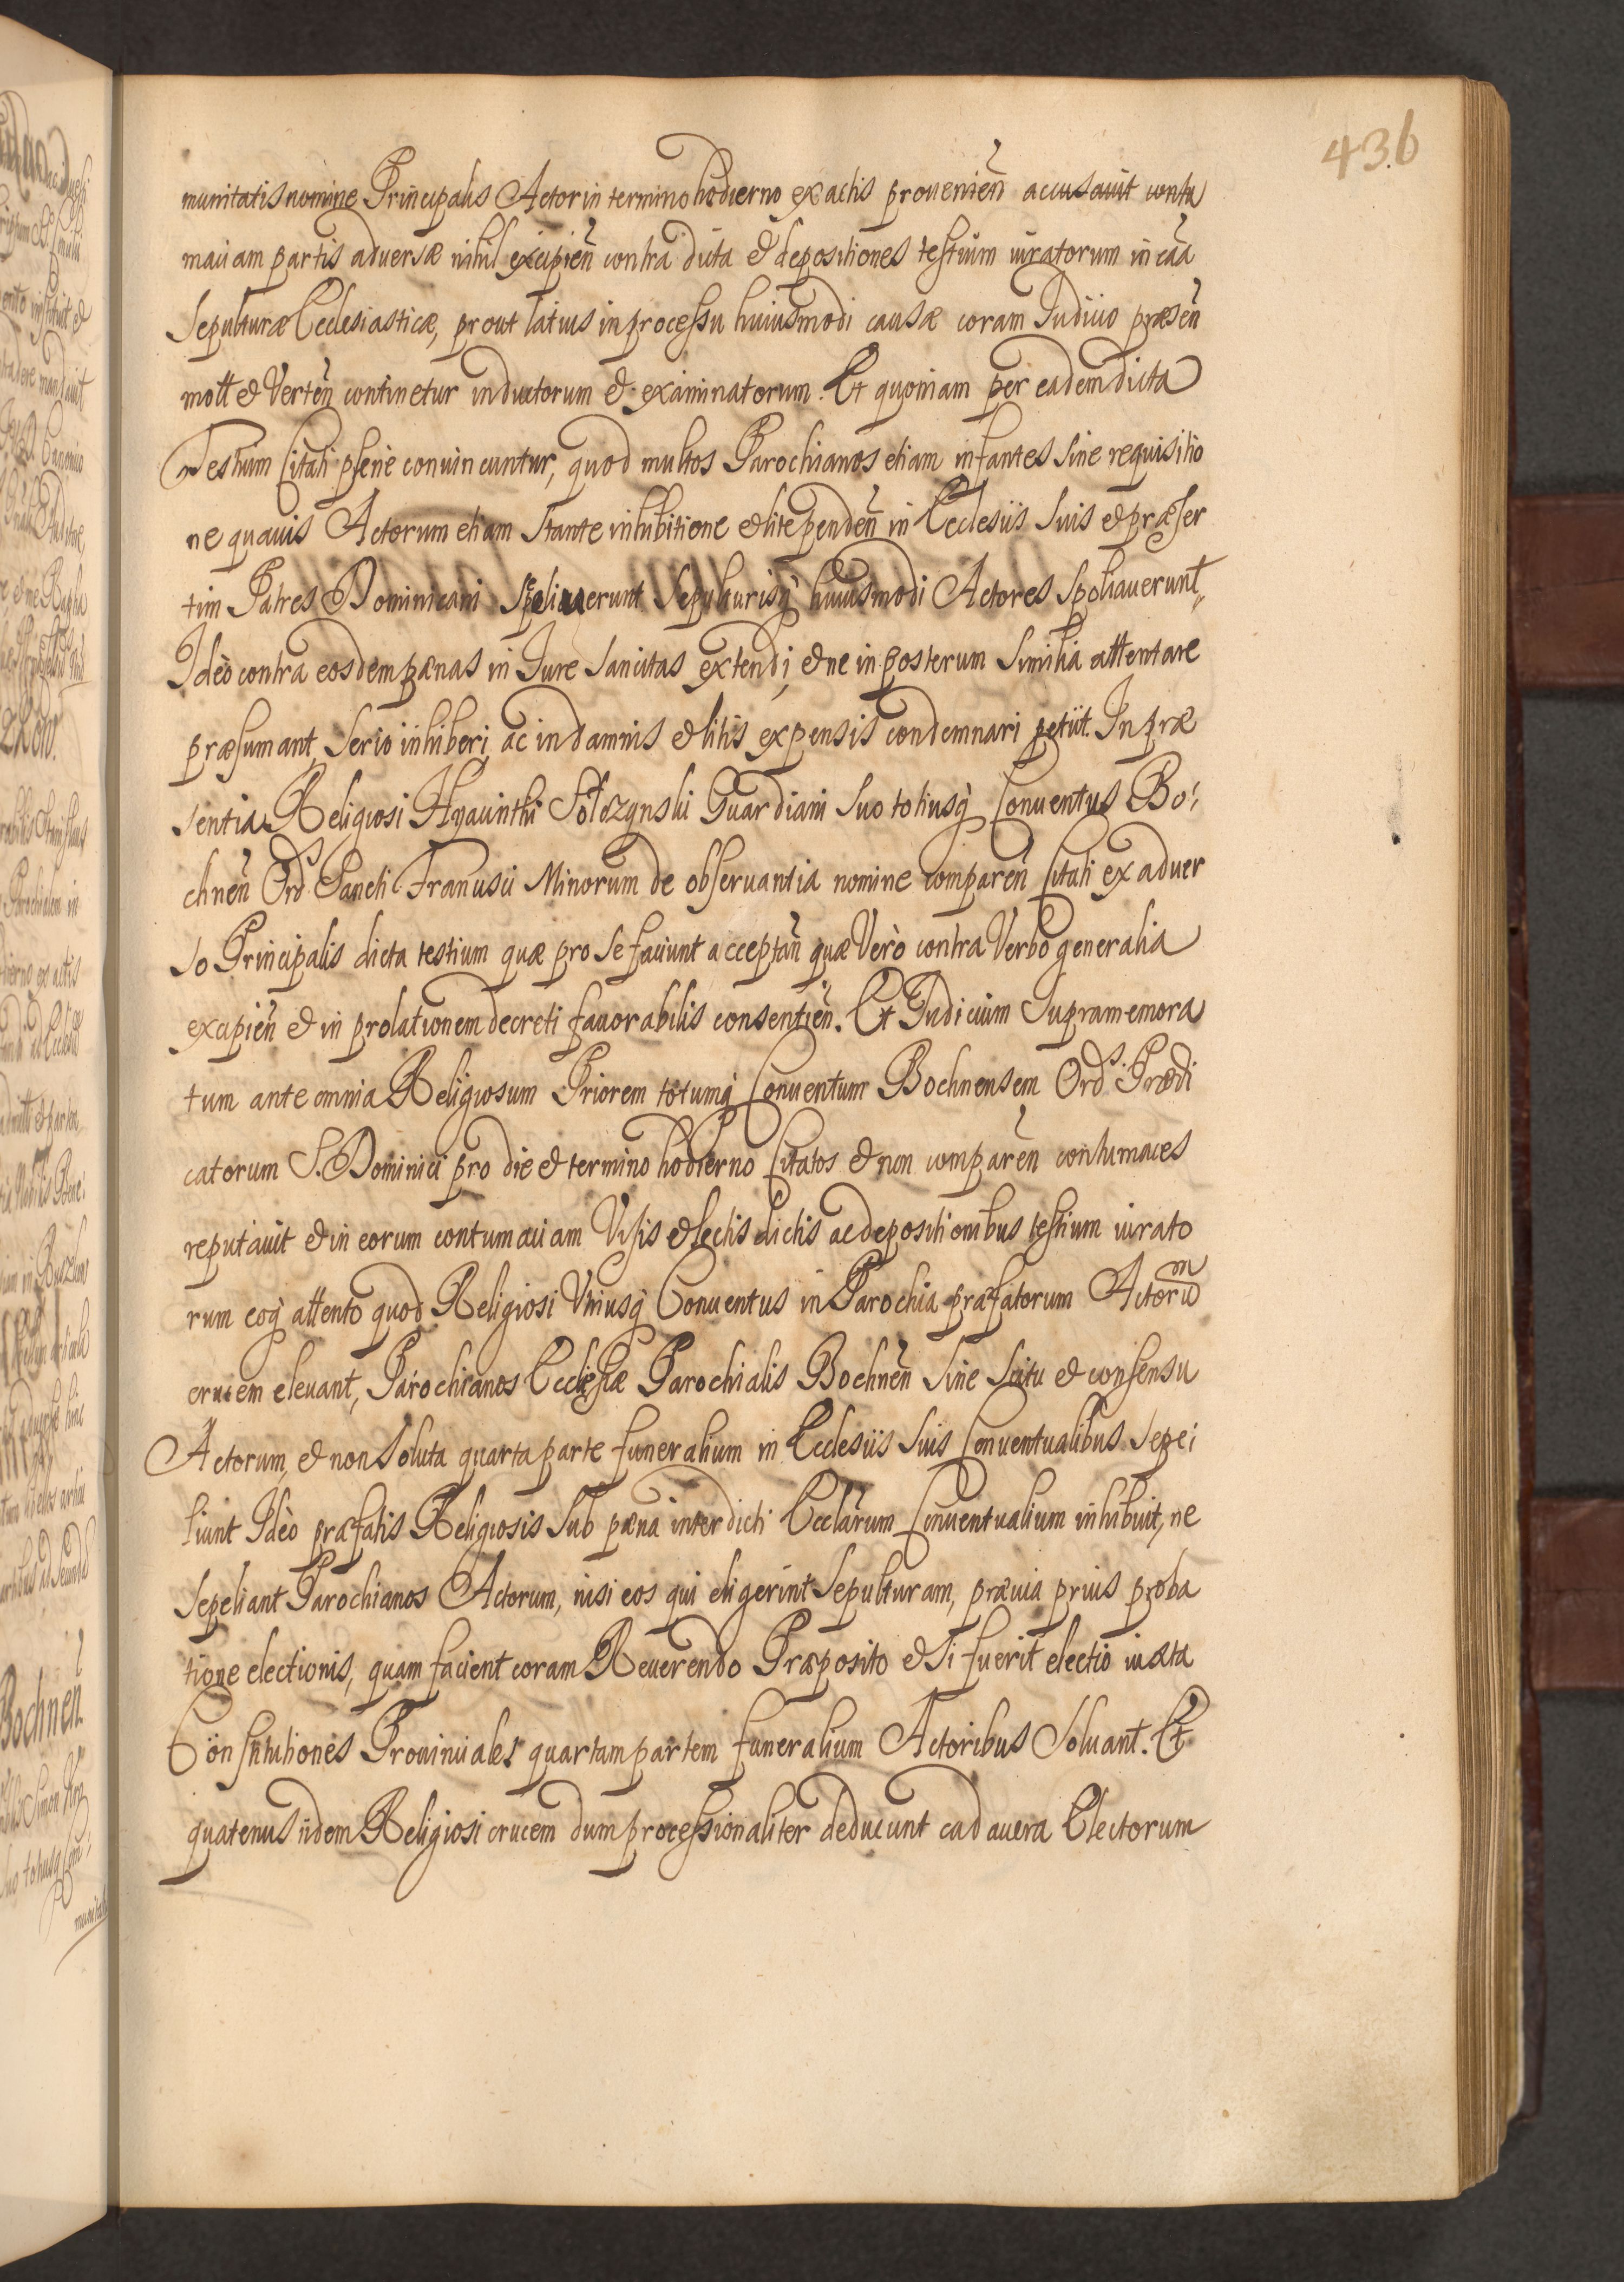 436
munitatis nomine Principalis Actor in termino hodierno ex actis prouenien̄ accusauit contu
maciam partis aduersæ nihil excipien̄ contra dicta & depositiones testium iuratorum in cãa
Sepulturæ Ecclesiasticæ, prout latius in processu huiusmodi causæ coram Iudicio præsen̄
mott & Verten̄ continetur inductorum & examinatorum. Et quoniam per eadem dicta
Testium Citati plene conuincuntur, quod multos Parochianos etiam infantes sine requisitio
ne quauis Actorum etiam stante inhibitione & lite penden̄ in Ecclesiis suis & præser
tim Patres Dominicani Sepeliuerunt Sepulturisq̀ huiusmodi Actores Spoliauerunt,
Ideò contra eosdem pænas in Iure sancitas extendi, & ne in posterum similia attentare
præsumant, serio inhiberi, ac in damnis & litis expensis condemnari petiit. In præ
sentia Religiosi Hyacinthi Sołdzynski Guardiani suo totiusq̀ Conuentus Bo:
chnen̄ Ord̄s Sancti Francisci Minorum de obseruantia nomine comparen̄ Citati ex aduer
so Principalis dicta testium quæ pro se faciunt acceptan̄ quæ Verò contra Verbo generalia
excipien̄ & in prolationem decreti fauorabilis consentien̄. Et Iudicium supramemora
tum ante omnia Religiosum Priorem totumq̀ Conuentum Bochnensem Ord̄s: Prædi
catorum S. Dominici pro die & termino hodierno Citatos & non comparen̄ contumaces
reputauit & in eorum contumaciam Visis & lectis dictis ac depositionibus testium iurato
rum eoq̀ attento quod Religiosi Vtriusq̀ Conuentus in Parochia præfatorum Actorū
crucem eleuant, Parochianos Ecclesiæ Parochialis Bochnen̄ Sine Scitu & consensu
Actorum, & non soluta quarta parte funeralium in Ecclesiis suis Conuentualibus sepe:
liunt Ideò præfatis Religiosis sub pæna interdicti Ecclārum Conuentualium inhibuit, ne
sepeliant Parochianos Actorum, nisi eos qui eligerint sepulturam, præuia prius proba
tione electionis, quam facient coram Reuerendo Præposito & si fuerit electio iuxta
Constitutiones Prouinciales quartam partem funeralium Actoribus soluant. Et
quatenus iidem Religiosi crucem dum processionaliter deducunt cadauera Electorum